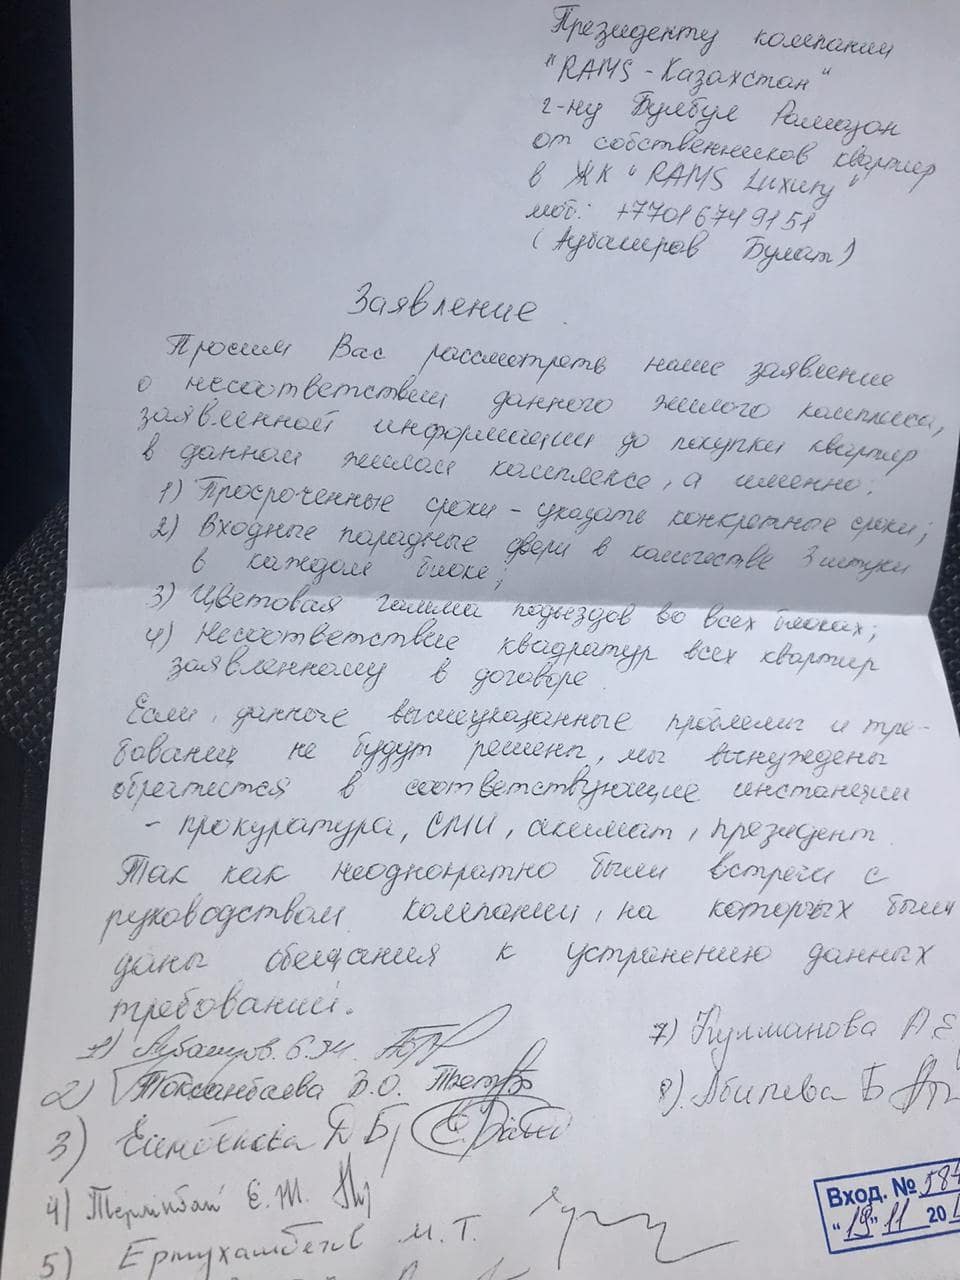 Президенту компании
"RAMS - Казахстан"
г-ну Булбул Рамазан
от собственников квартир
в ЖК "RAMS Luxury"
моб: +77016749151
(Аубакиров Булат)
Заявление
Просим Вас рассмотреть наше заявление
о несоответствии данного жилого комплекса,
заявленной информации до покупки квартир
в данном жилом комплексе, а именно:
1) Просроченные сроки - указать конкретные сроки;
2) Входные парадные двери в количестве 3 штуки
в каждом блоке;
3) Цветовая гамма подъездов во всех блоках;
4) Несоответствие квадратур всех квартир
заявленному в договоре
Если, данные вышеуказанные проблемы и тре-
бования не будут решены, мы вынуждены
обратится в соответствующие инстанции
- прокуратура, СМИ, акимат, президент.
Так как неоднократно были встречи с
руководством компании, на которых были
даны обещания к устранению данных
требований.
1) Аубакиров Б.Ж.
2) Токсанбаева В.О.
3) Д Б
4) Е.Ж.
5) Ермухамбетов М.Т.
7) Кулманова А.Е
8). Б
Вход. № 587
"19" 11 20